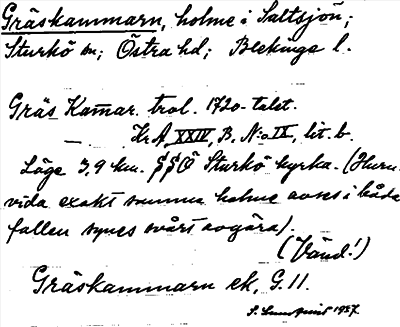 Gräskammarn, holme i Saltsjön;
Sturkö sn; Östra hd; Blekinge l.
Gräs Kamar. trol. 1720-talet.
— . KrA XXIV, B. N:o IX, lit. b.
Läge 3,9 km. SSÖ Sturkö kyrka. (Huru-
vida exakt samma holme avses i båda
fallen synes svårt avgöra).
(Vänd!)
Gräskammarn ek. G. 11.
S. Lundquist 1937.